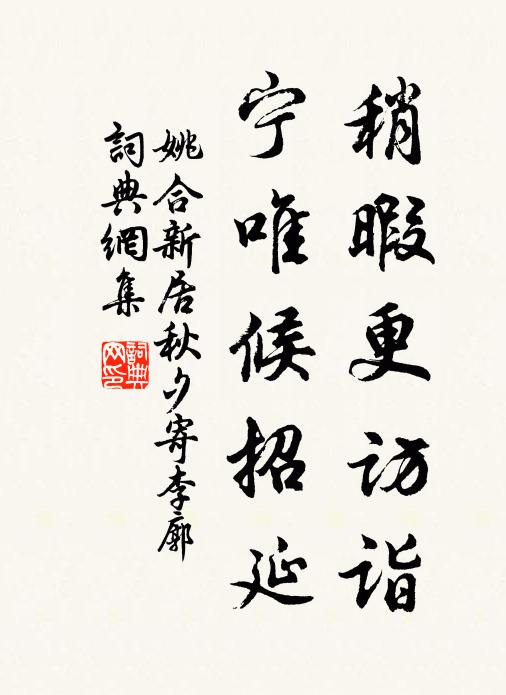 稍暇更访诣
宁唯候招延
姚合新居秋夕寄李廓
詞典網集
詞典
网印